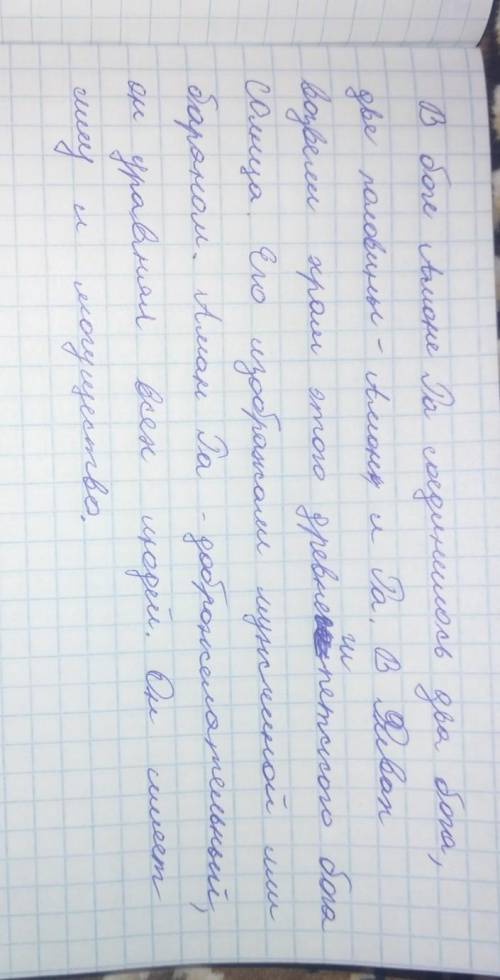 В боге Амоне Ра соединилось два бога,
две половины - Амон и Ра. В Фивах
возвели храм этого древнеегипетского бога
солнца. Его изображали мужчиной или
бараном. Амон Ра - доброжелательный,
он уравнял всех людей. Он имеет
силу и могущество.